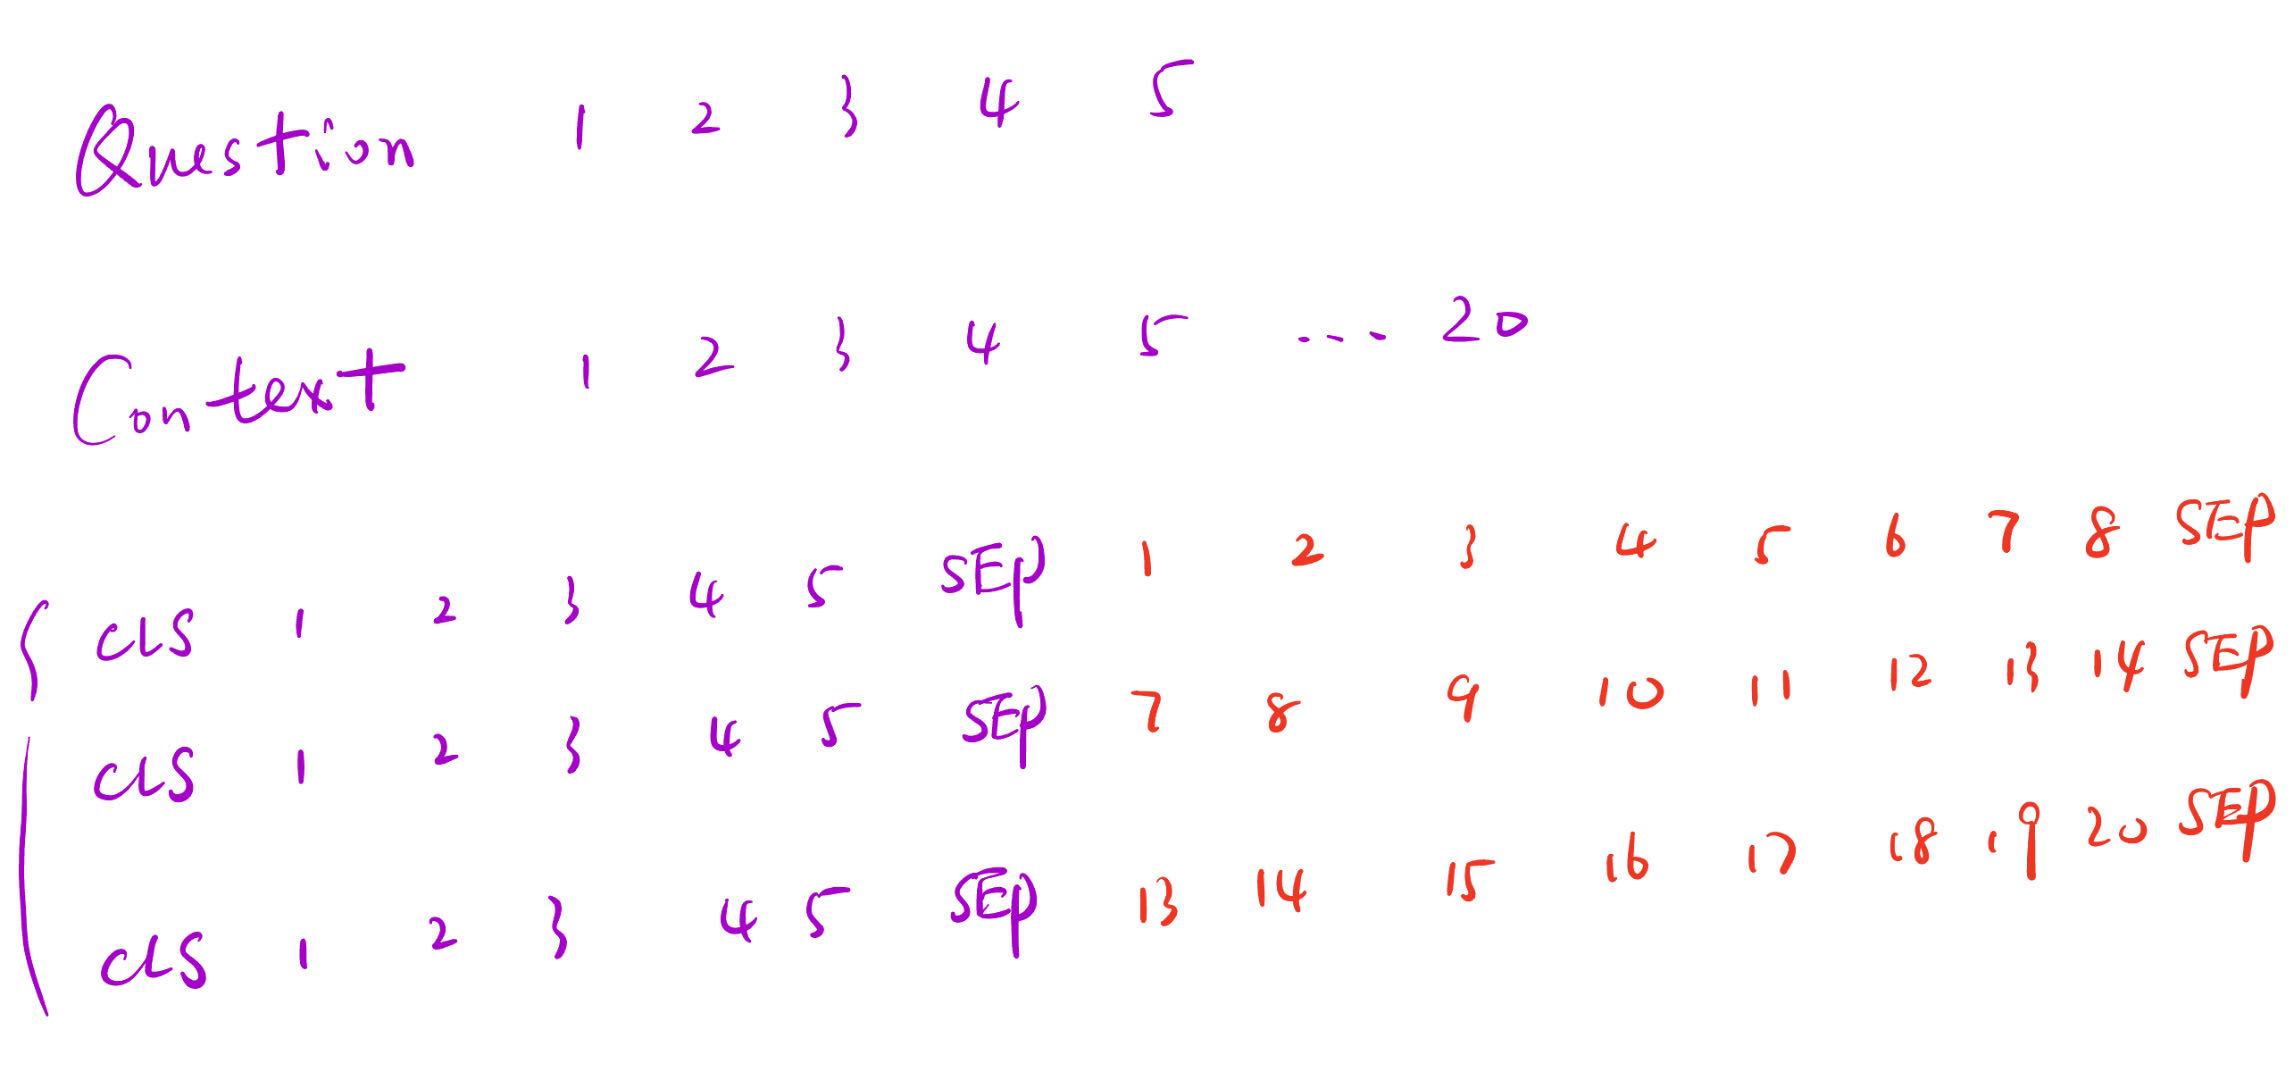 Question 1 2 3 4 5
Context 1 2 3 4 5 ... 20
cls 1 2 3 4 5 SEP 1 2 3 4 5 6 7 8 SEP
cls 1 2 3 4 5 SEP 7 8 9 10 11 12 13 14 SEP
cls 1 2 3 4 5 SEP 13 14 15 16 17 18 19 20 SEP